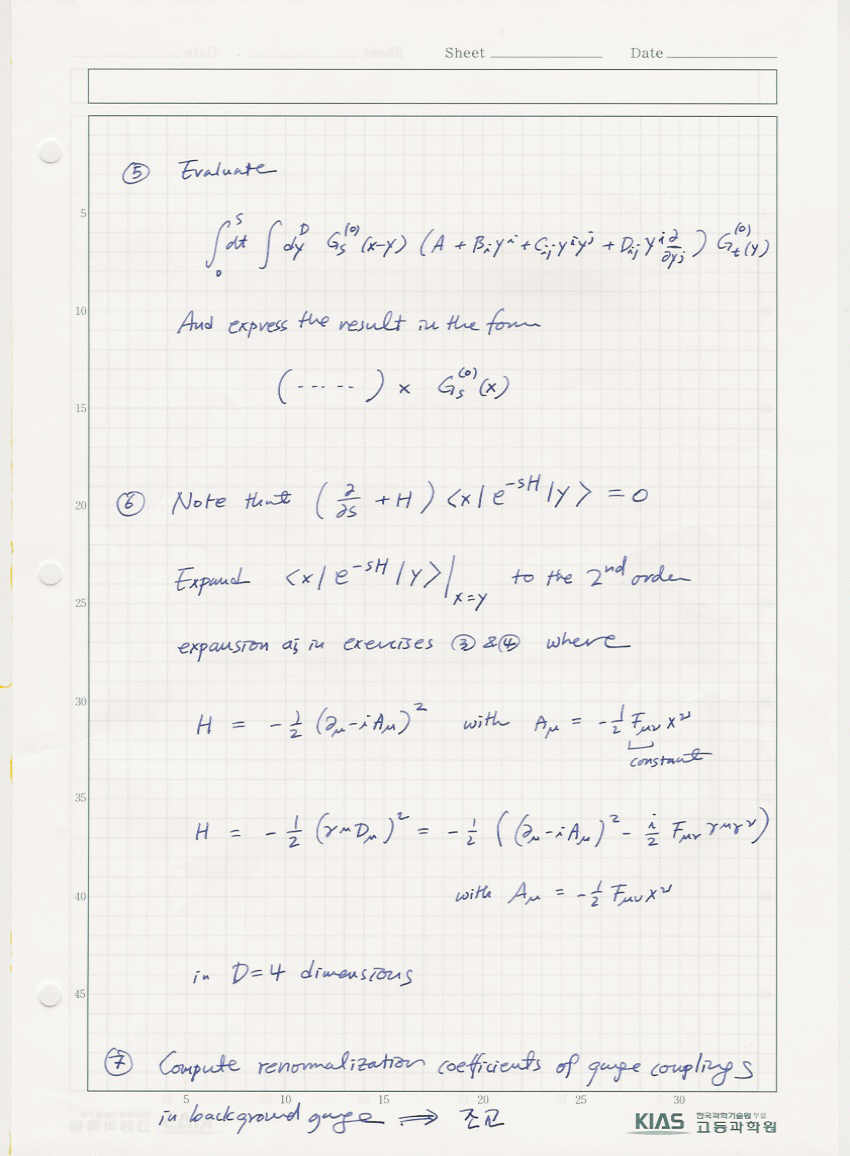 Sheet Date
⑤ Evaluate
∫₀^S dt ∫ dy^D G_s^(0)(x-y) (A + B_i y^i + C_ij y^i y^j + D_ij y^i ∂/∂y^j) G_t^(0)(y)
And express the result in the form
(-----) × G_s^(0)(x)
⑥ Note that (∂/∂s + H) <x|e^{-sH}|y> = 0
Expand <x|e^{-sH}|y>|_{x=y} to the 2nd order
expansion as in exercises ③ & ④ where
H = -1/2 (∂_μ - iA_μ)^2 with A_μ = -1/2 F_μν x^ν
constant
H = -1/2 (γ^μ D_μ)^2 = -1/2 ((∂_μ - iA_μ)^2 - i/2 F_μν γ^μ γ^ν)
with A_μ = -1/2 F_μν x^ν
in D=4 dimensions
⑦ Compute renormalization coefficients of gauge couplings
in background gauge ⇒ 조교
5 10 15 20 25 30
5
10
15
20
25
30
35
40
45
KIAS 한국과학기술원 부설
고등과학원